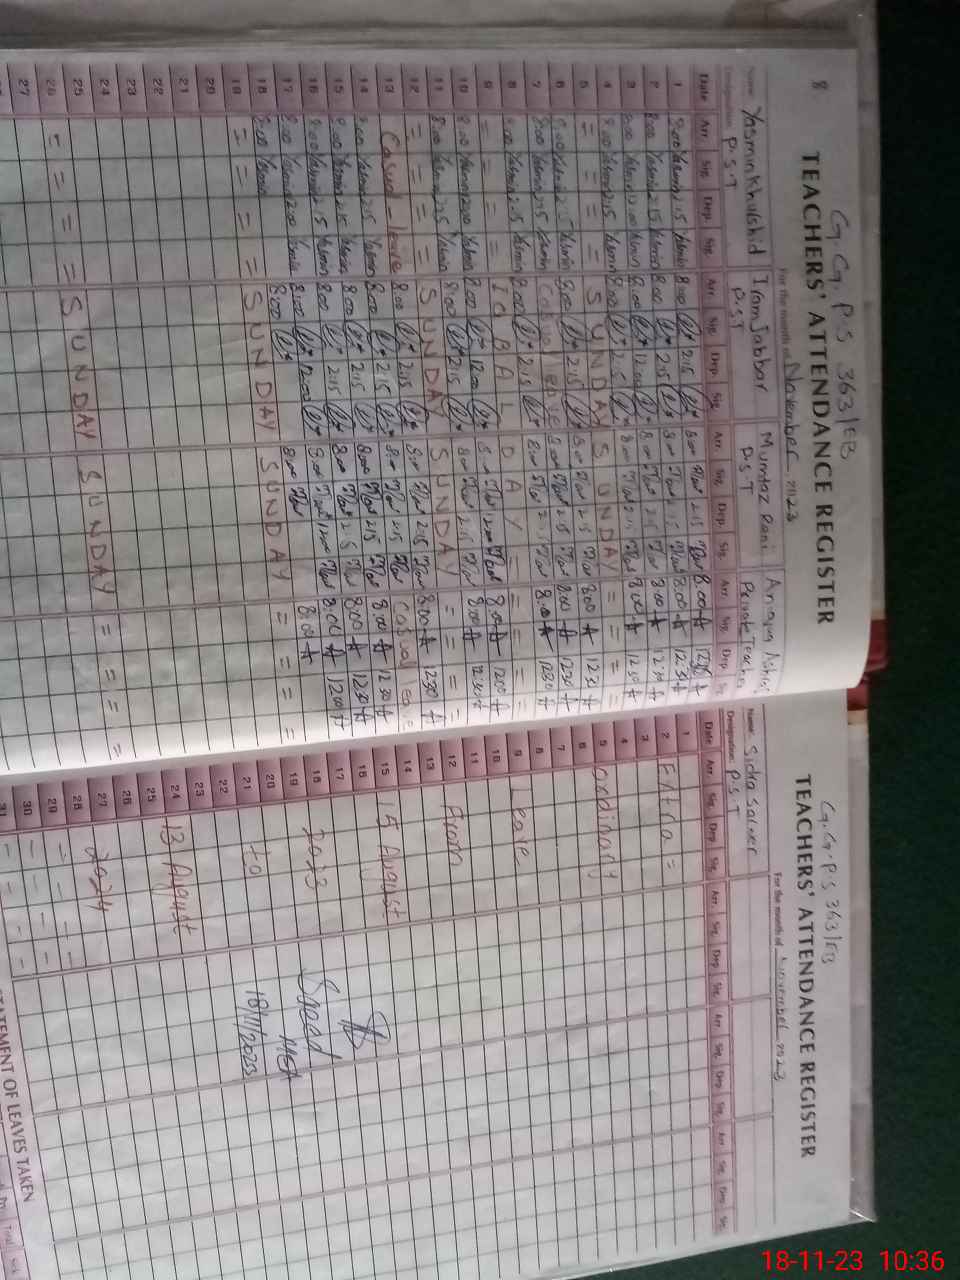 8
G.G.P.S 363/EB
TEACHERS' ATTENDANCE REGISTER
For the month of November 2023
Name: Yasmin Khulshid Iram Jabbar Mumtaz Rani
Designation: P.S.T P.S.T P.S.T Private Teacher
Date Arr. Sig. Dep. Sig. Arr. Sig. Dep. Sig. Arr. Sig. Dep. Sig. Arr. Sig. Dep. Sig.
1 8:00 Yasmin 2:15 Yasmin 8:00 2:15 8:00 2:15 8:00 12:30
2 8:00 Yasmin 2:15 Yasmin 8:00 2:15 8:00 2:15 8:00 12:30
3 8:00 Yasmin 12:00 Yasmin 8:00 12:00 8:00 2:15 8:00 12:30
4 8:00 Yasmin 2:15 Yasmin 8:00 2:15 8:00 2:15 8:00 12:30
5 = = = = SUNDAY SUNDAY = = = =
6 8:00 Yasmin 2:15 Yasmin 8:00 2:15 8:00 2:15 8:00 12:30
7 8:00 Yasmin 2:15 Yasmin Casual leave 8:00 2:15 8:00 12:30
8 8:00 Yasmin 2:15 Yasmin 8:00 2:15 8:00 2:15 8:00 12:30
9 = = = IQBAL DAY = = = =
10 8:00 Yasmin 12:00 Yasmin 8:00 12:00 8:00 12:00 8:00 12:00
11 8:00 Yasmin 2:15 Yasmin 8:00 2:15 8:00 2:15 8:00 12:30
12 = = = = SUNDAY SUNDAY = = = =
13 Casual - leave 8:00 2:15 8:00 2:15 8:00 12:30
14 8:00 Yasmin 2:15 Yasmin 8:00 2:15 8:00 2:15 Casual leave
15 8:00 Yasmin 2:15 Yasmin 8:00 2:15 8:00 2:15 8:00 12:30
16 8:00 Yasmin 2:15 Yasmin 8:00 2:15 8:00 2:15 8:00 12:30
17 8:00 Yasmin 12:00 Yasmin 8:00 12:00 8:00 12:00 8:00 12:00
18 8:00 Yasmin 8:00 8:00 8:00
19 = = = = SUNDAY SUNDAY = = = =
20
21
22
23
24
25
26 = = = = SUNDAY SUNDAY = = = =
27
G.G.P.S 363/EB
TEACHERS' ATTENDANCE REGISTER
For the month of November 2023
Name: Sidra Sarwer
Designation: P.S.T
Date Arr. Sig. Dep. Sig. Arr. Sig. Dep. Sig. Arr. Sig. Dep. Sig. Arr. Sig. Dep. Sig.
1
2 Extra =
3
4
5 ordinary
6
7
8
9 Leave
10
11
12 From
13
14
15 15 August
16
17
18 2023
19
20
21 to
22
23
24 13 August
25
26
27 2024
28
29
30
31
18/11/2023
STATEMENT OF LEAVES TAKEN
18-11-23 10:36